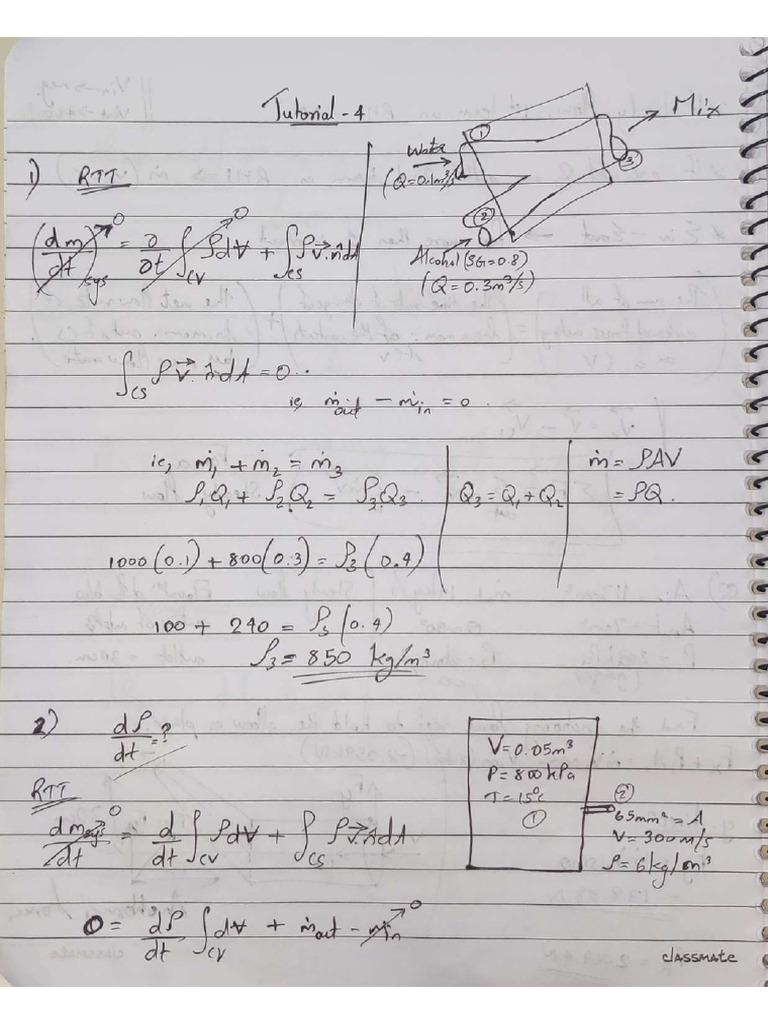 Tutorial - 4
Mix
1) RTT
Water
(Q=0.1m³/s
①
③
②
Alcohol (SG=0.8)
(Q = 0.3m³/s)
(dm/dt)sys → 0 = ∂/∂t ∫CV ρdV → 0 + ∫CS ρV⃗.n̂dA
∫CS ρV⃗.n̂dA = 0 ..
ie, ṁout - ṁin = 0.
ie, ṁ₁ + ṁ₂ = ṁ₃
ρ₁Q₁ + ρ₂Q₂ = ρ₃Q₃
Q₃ = Q₁ + Q₂
ṁ = ρAV
= ρQ.
1000(0.1) + 800(0.3) = ρ₃(0.4)
100 + 240 = ρ₃(0.4)
ρ₃ = 850 kg/m³
2) dρ/dt = ?
V=0.05m³
P=800kPa
T=15°C
①
②
65mm² = A
V=300m/s
ρ=6kg/m³
RTT
dmsys/dt → 0 = d/dt ∫CV ρdV + ∫CS ρV⃗.n̂dA
0 = dρ/dt ∫CV dV + ṁout - ṁin → 0
classmate